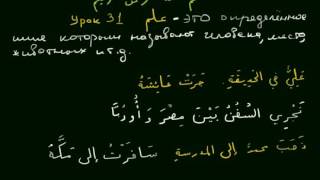 Урок 31 علم - это определённое
имя которым называют человека, место,
животных и т.д.
عَلِيٌّ فِي الْحَدِيقَةِ جَرَتْ عَائِشَةُ
تَجْرِي السُّفُنُ بَيْنَ مِصْرَ وَأُورُبَّا
ذَهَبَ محمدٌ إلى المدرسةِ سَافَرْتُ إلى مَكَّةَ